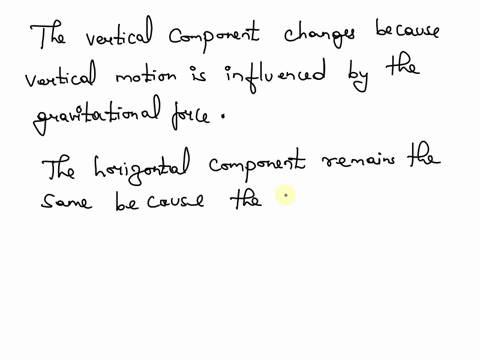 The vertical component changes because
vertical motion is influenced by the
gravitational force.
The horizontal component remains the
same because the